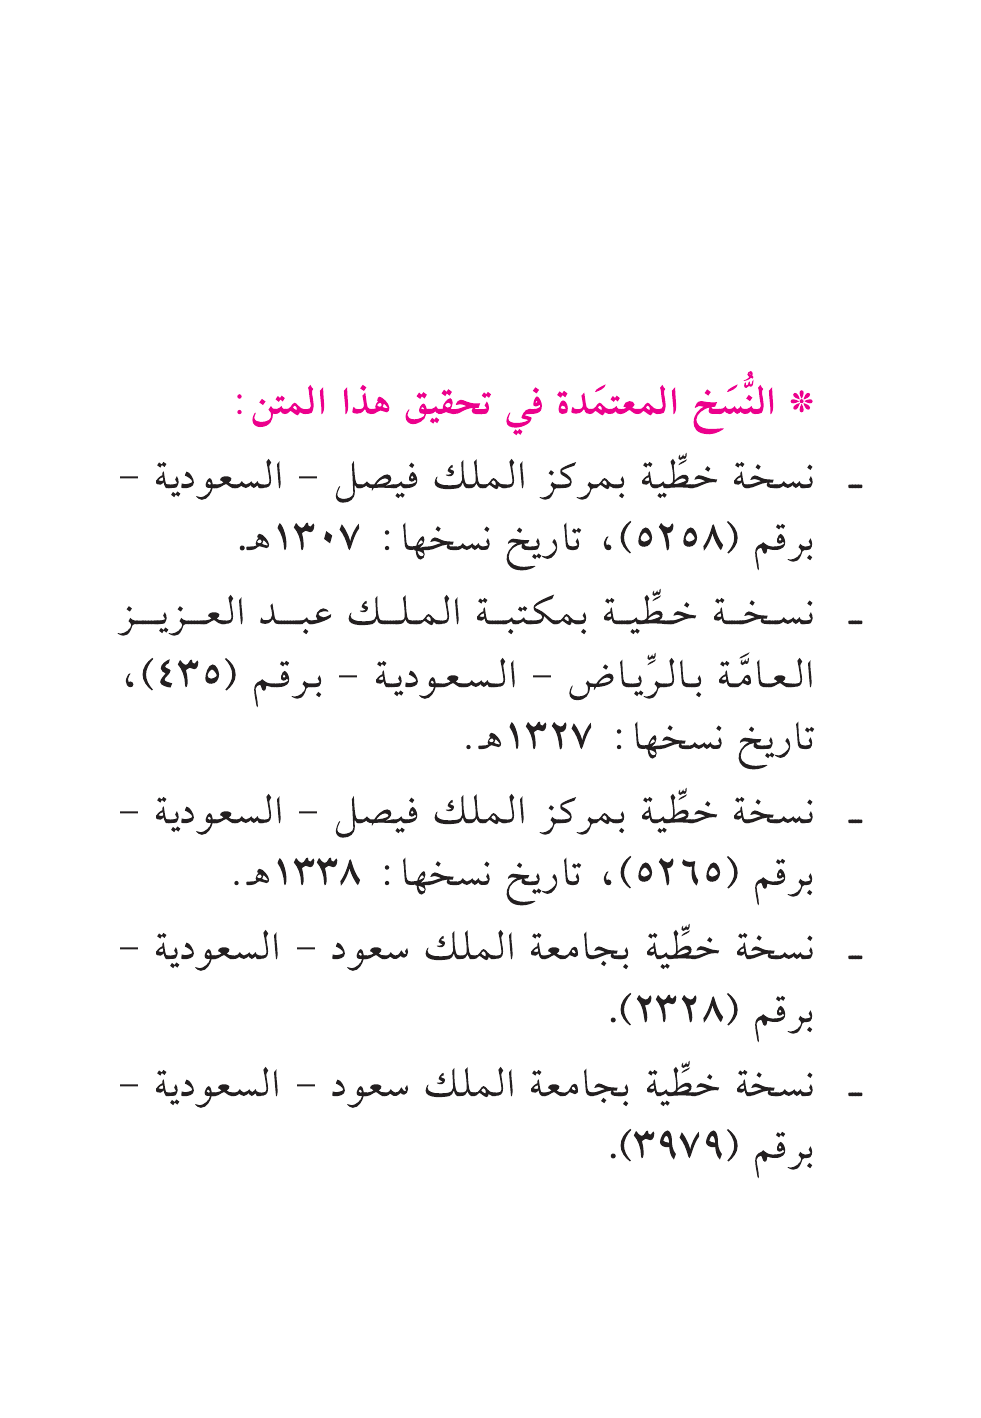 ❊ النُّسَخ المعتمَدة في تحقيق هذا المتن:
ـ نسخة خطِّية بمركز الملك فيصل – السعودية –
برقم (٥٢٥٨)، تاريخ نسخها: ١٣٠٧هـ.
ـ نسخة خطِّية بمكتبة الملك عبد العزيز
العامَّة بالرِّياض – السعودية – برقم (٤٣٥)،
تاريخ نسخها: ١٣٢٧هـ.
ـ نسخة خطِّية بمركز الملك فيصل – السعودية –
برقم (٥٢٦٥)، تاريخ نسخها: ١٣٣٨هـ.
ـ نسخة خطِّية بجامعة الملك سعود – السعودية –
برقم (٢٣٢٨).
ـ نسخة خطِّية بجامعة الملك سعود – السعودية –
برقم (٣٩٧٩).